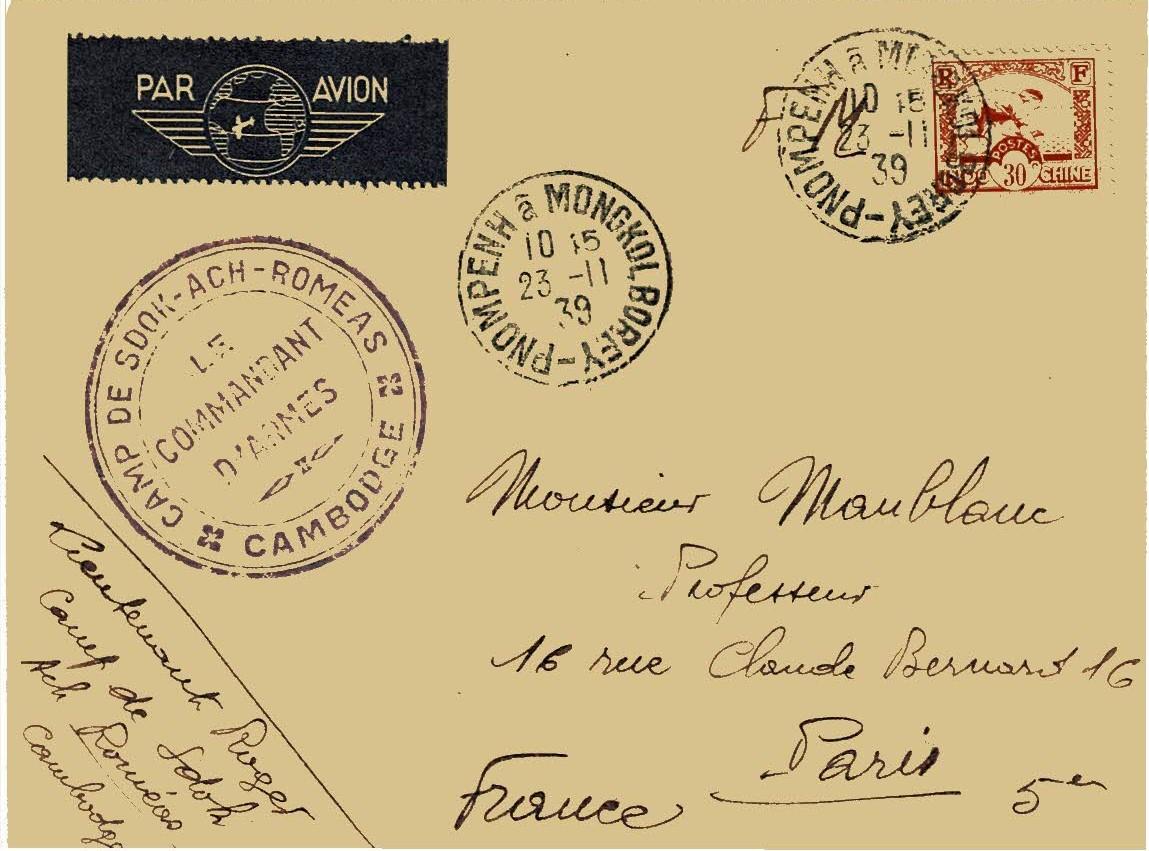 PAR AVION
F M
PNOMPENH à MONGKOL BOREY
10 15
23 -11
39
R F
POSTES
INDO 30 CHINE
PNOMPENH à MONGKOL BOREY
10 15
23 -11
39
CAMP DE SDOK-ACH-ROMEAS
LE
COMMANDANT
D'ARMES
CAMBODGE
Monsieur Maublanc
Professeur
16 rue Claude Bernard 16
Paris
France 5er
Lieutenant Roger
Camp de Sdok
Ach Roméas
Cambodge